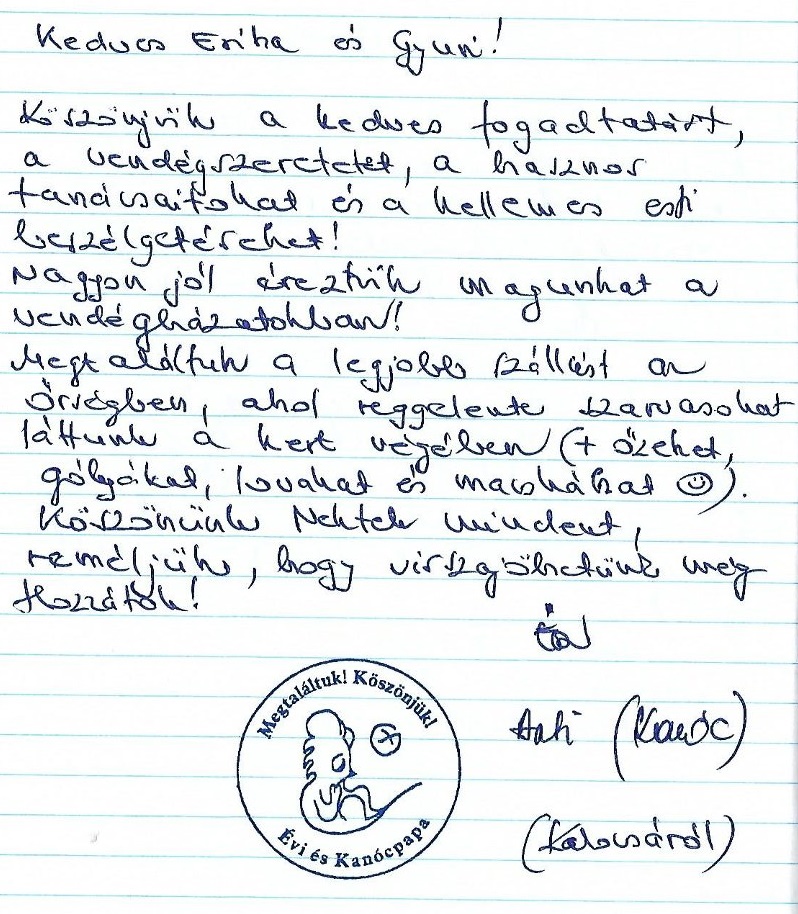 Kedves Erika és Gyuri!
Köszönjük a kedves fogadtatást,
a vendégszeretetet, a hasznos
tanácsaitokat és a kellemes esti
beszélgetéseket!
Nagyon jól éreztük magunkat a
vendégházatokban!
Megtaláltuk a legjobb szállást az
Őrségben, ahol reggelente szarvasokat
láttunk a kert végében (+ őzeket,
gólyákat, lovakat és macskákat ☺).
Köszönünk Nektek mindent,
reméljük, hogy visszajöhetünk még
Hozzátok!
Megtaláltuk! Köszönjük!
Évi és Kanócpapa
(Kanóc)
(Kalocsáról)